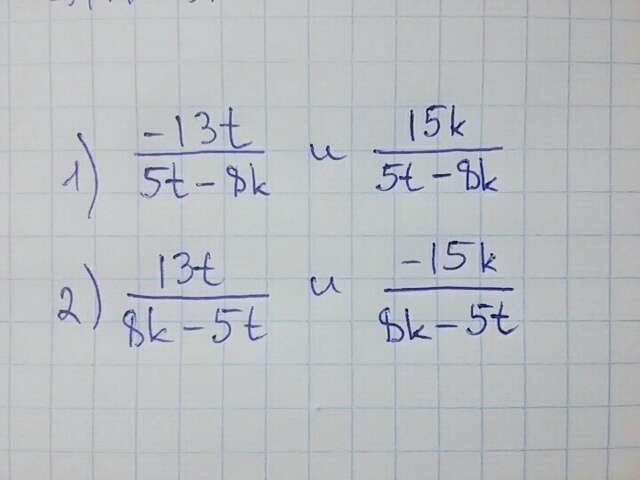 1) -13t / 5t - 8k и 15k / 5t - 8k
2) 13t / 8k - 5t и -15k / 8k - 5t